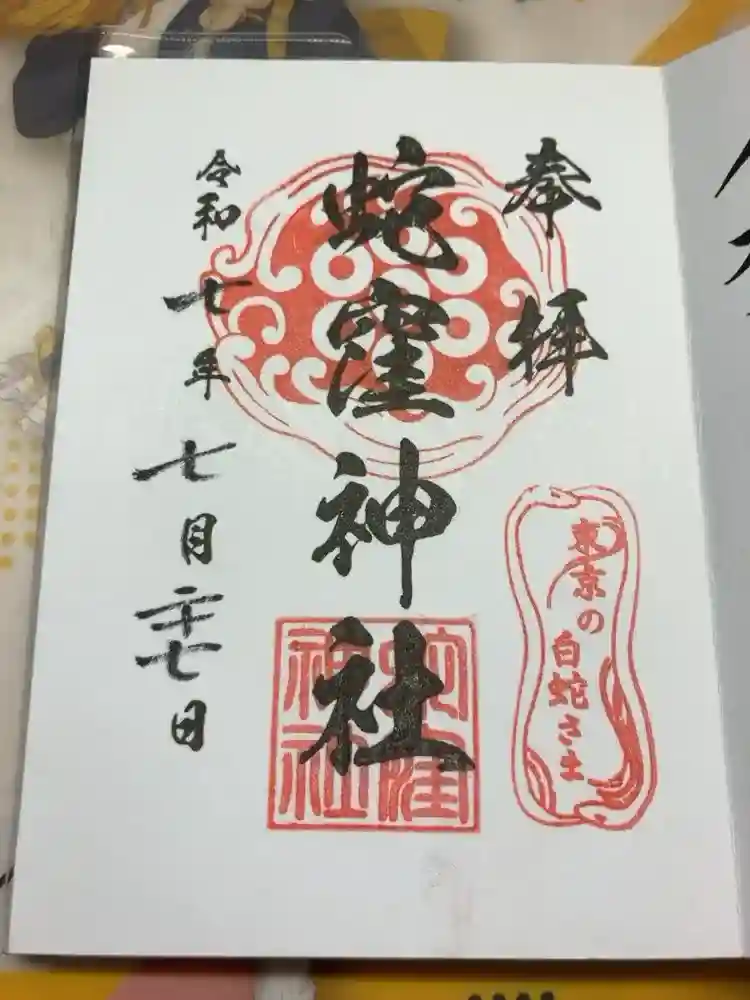 奉拝
東京の
白蛇さま
蛇窪神社
蛇窪
神社
令和七年七月二十七日